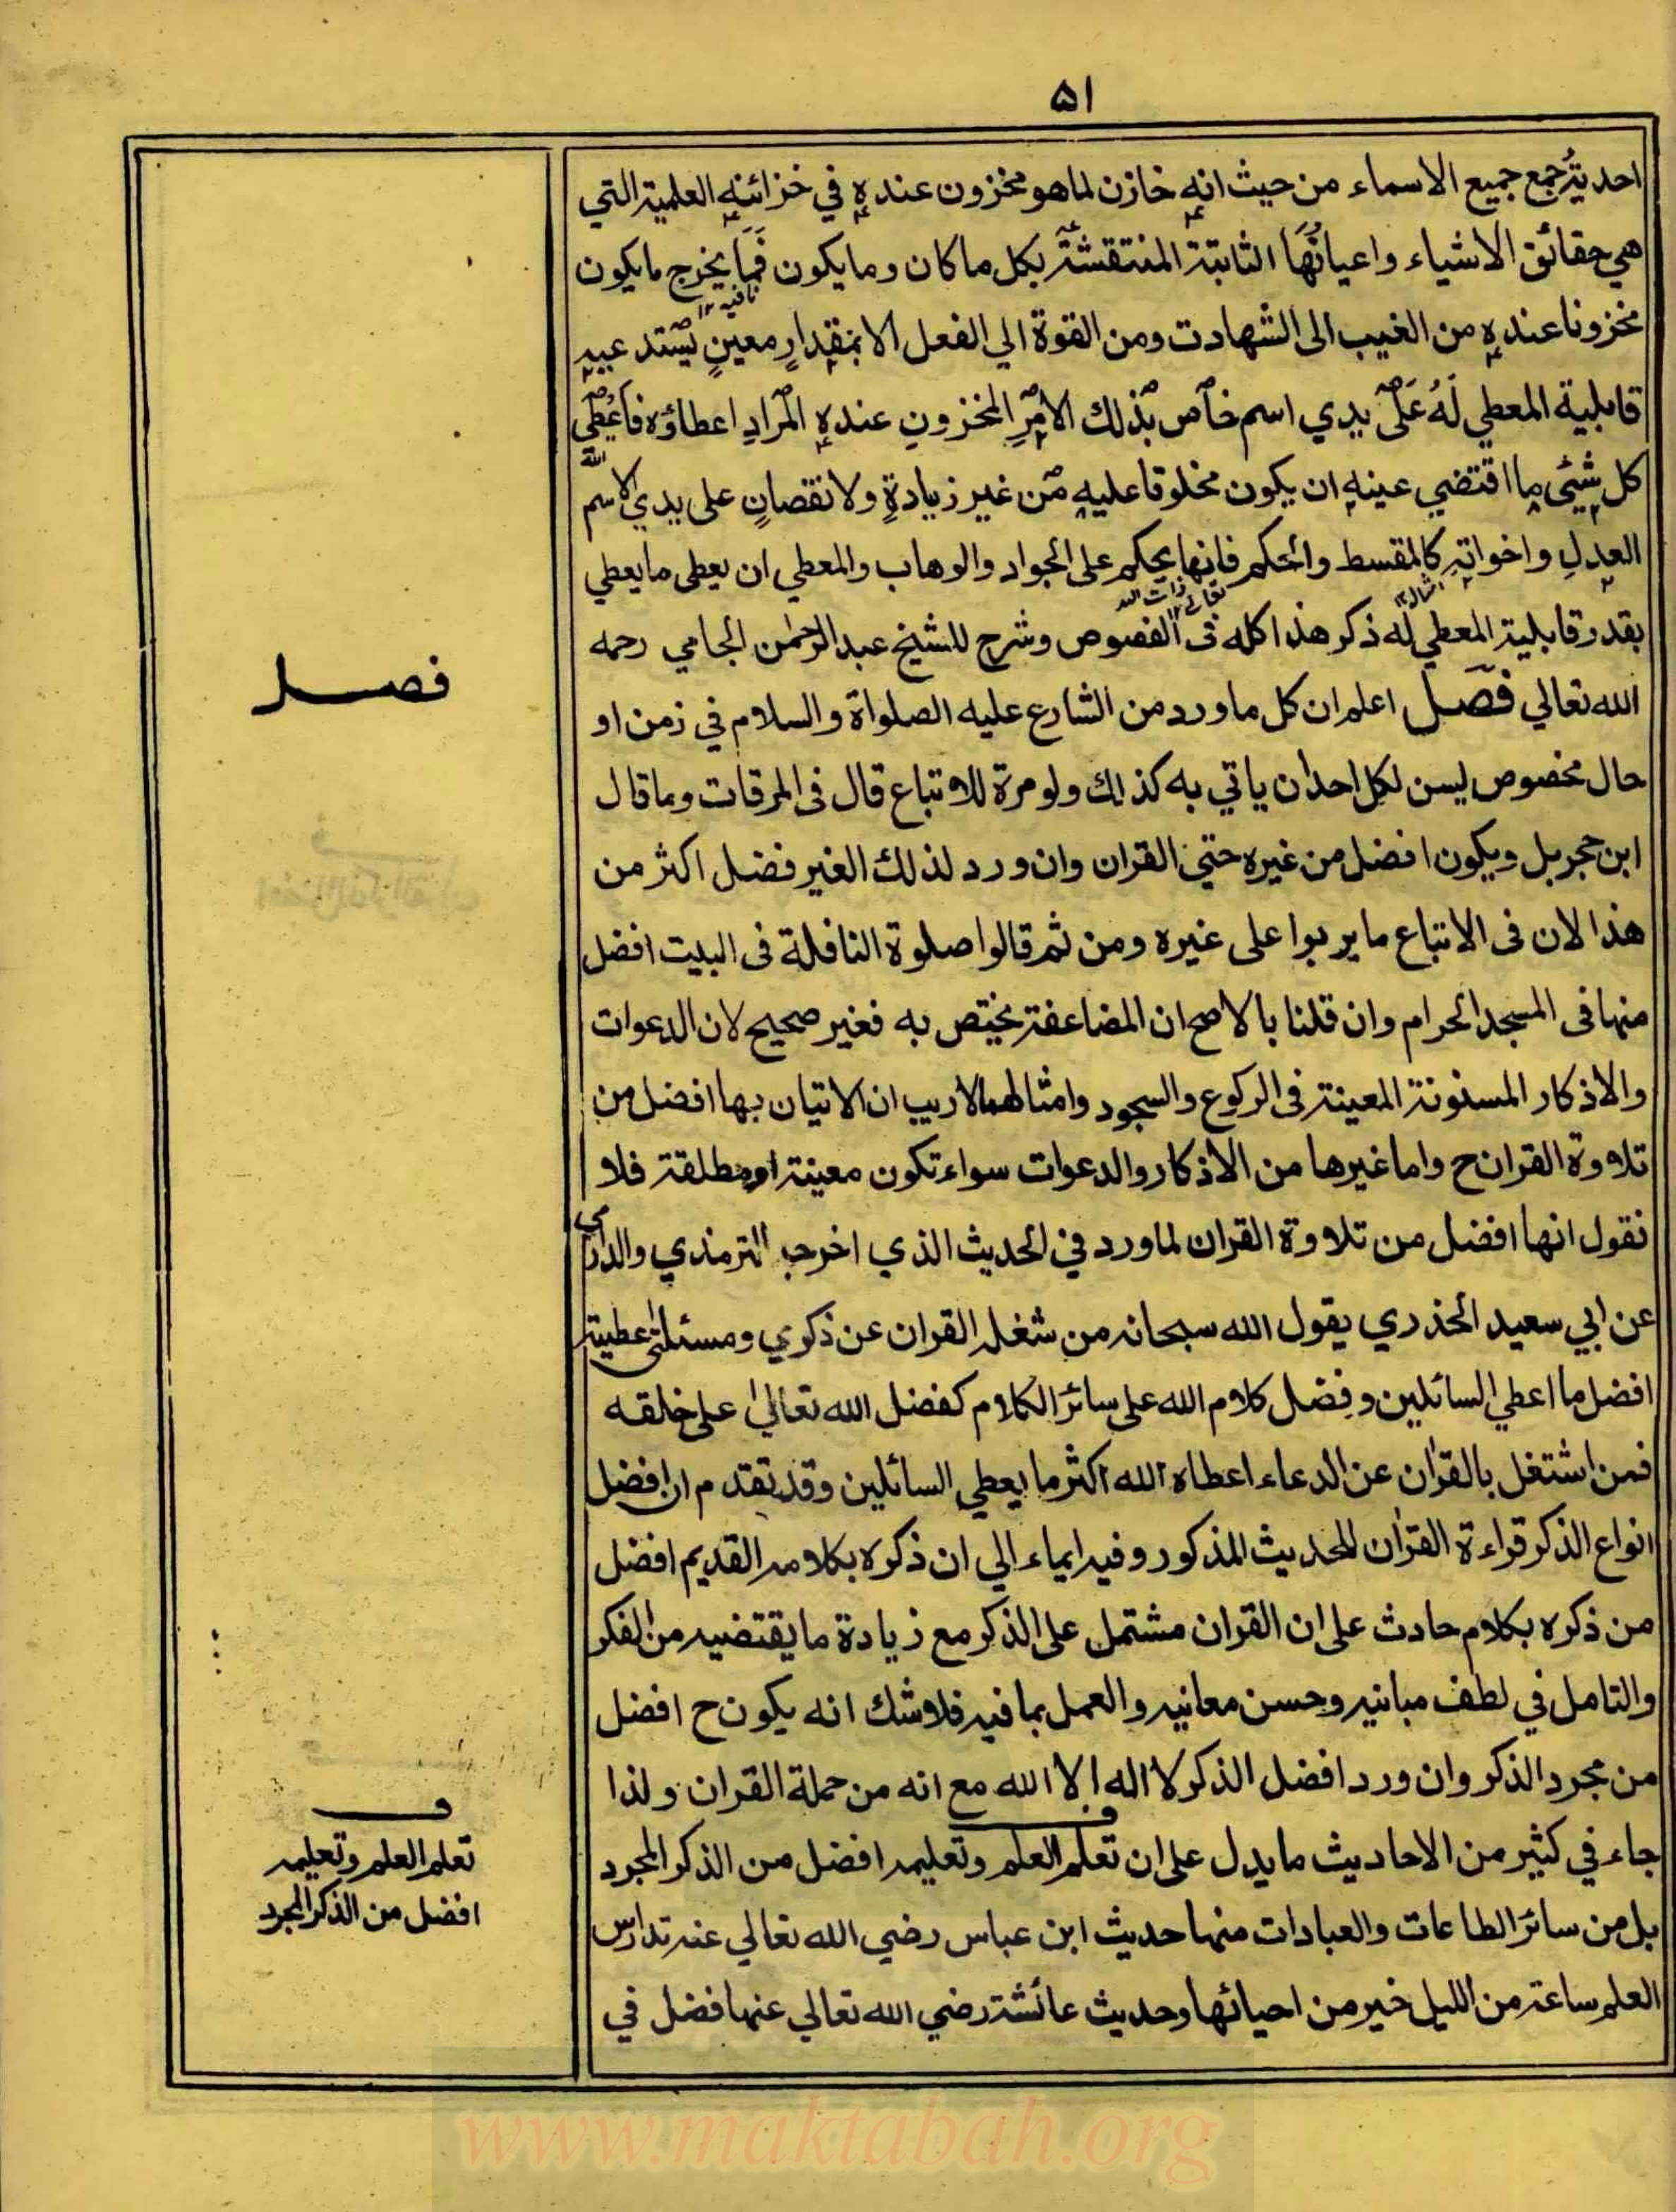 ۵۱
احدية جمع جميع الاسماء من حيث انه خازن لما هو مخزون عنده في خزائنه العلمية التي
هي حقائق الاشياء واعيانها الثابتة المنتقشة بكل ما كان وما يكون فما يخرج ما يكون
نافيه ۱۲
مخزونا عنده من الغيب الى الشهادت ومن القوة الي الفعل الا بمقدار معين يستدعيه
قابلية المعطي له على يدي اسم خاص بذلك الامر المخزون عنده المراد اعطاؤه فاعطي
الله
كل شئي ما اقتضي عينه ان يكون مخلوقا عليه من غير زيادة ولا نقصان على يدي الاسم
العدل واخواته كالمقسط والحكم فانها يحكم على الجواد والوهاب والمعطي ان يعطى ما يعطي
بقدر قابلية المعطي له ذكر هذا كله فى الفصوص وشرح للشيخ عبد الرحمن الجامي رحمه
الله تعالي فصل اعلم ان كل ما ورد من الشارع عليه الصلواة والسلام في زمن او
حال مخصوص ليسن لكل احد ان ياتي به كذلك ولو مرة للاتباع قال فى المرقات وما قال
ابن حجر بل ويكون افضل من غيره حتي القران وان ورد لذلك الغير فضل اكثر من
هذا لان فى الاتباع ما يربوا على غيره ومن ثم قالوا صلوة النافلة فى البيت افضل
منها فى المسجد الحرام وان قلنا بالاصح ان المضاعفة يختص به فغير صحيح لان الدعوات
والاذكار المسنونة المعينة فى الركوع والسجود وامثالهما لا ريب ان الاتيان بها افضل من
تلاوة القران ح واما غيرها من الاذكار والدعوات سواء تكون معينة او مطلقة فلا
نقول انها افضل من تلاوة القران لما ورد في الحديث الذي اخرجه الترمذي والدارمي
عن ابي سعيد الخذري يقول الله سبحانه من شغله القران عن ذكري ومسئلتى عطيته
افضل ما اعطي السائلين وفضل كلام الله على سائر الكلام كفضل الله تعالي على خلقه
فمن اشتغل بالقران عن الدعاء اعطاه الله اكثر ما يعطي السائلين وقد تقدم ان افضل
انواع الذكر قراءة القران للحديث المذكور وفيه ايماء الي ان ذكره بكلامه القديم افضل
من ذكره بكلام حادث على ان القران مشتمل على الذكر مع زيادة ما يقتضيه من الفكر
والتامل في لطف مبانيه وحسن معانيه والعمل بما فيه فلا شك انه يكون ح افضل
من مجرد الذكر وان ورد افضل الذكر لا اله الا الله مع انه من حملة القران ولذا
جاء في كثير من الاحاديث ما يدل على ان تعلم العلم وتعليمه افضل من الذكر المجرد
بل من سائر الطاعات والعبادات منها حديث ابن عباس رضي الله تعالي عنه تدارس
العلم ساعة من الليل خير من احيائها وحديث عائشة رضي الله تعالي عنها فضل في
فصل
ف
تعلم العلم وتعليمه
افضل من الذكر المجرد
www.maktabah.org